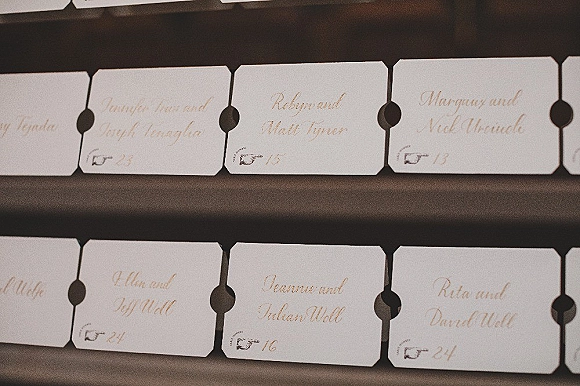 Tejada
Jennifer Truz and
Joseph Tenaglia
23
Robyn and
Matt Tyner
15
Margaux and
Nick
13
Wolfe
Ellen and
Jeff Woll
24
Jeannie and
Julian Woll
16
Rita and
David Woll
24